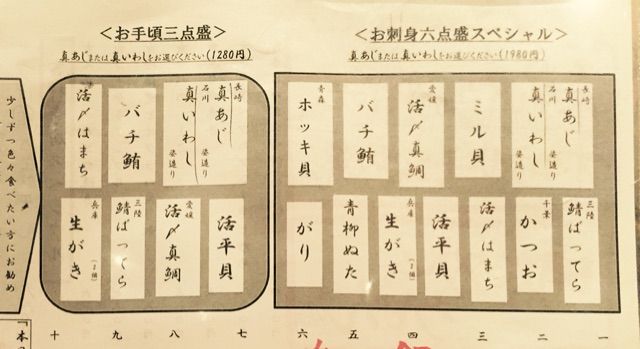 ＜お刺身六点盛スペシャル＞
真あじまたは真いわしをお選びください(1980円)
長崎 真あじ 姿造り
石川 真いわし 姿造り
ミル貝
愛媛 活〆真鯛
バチ鮪
青森 ホッキ貝
三陸 鯖ばってら
千葉 かつお
活〆はまち
活平貝
兵庫 生がき (1個)
青柳ぬた
がり
＜お手頃三点盛＞
真あじまたは真いわしをお選びください(1280円)
長崎 真あじ
石川 真いわし 姿造り
バチ鮪
活〆はまち
活平貝
愛媛 活〆真鯛
三陸 鯖ばってら
兵庫 生がき (1個)
少しずつ色々食べたい方にお勧め
一 二 三 四 五 六 七 八 九 十
「本